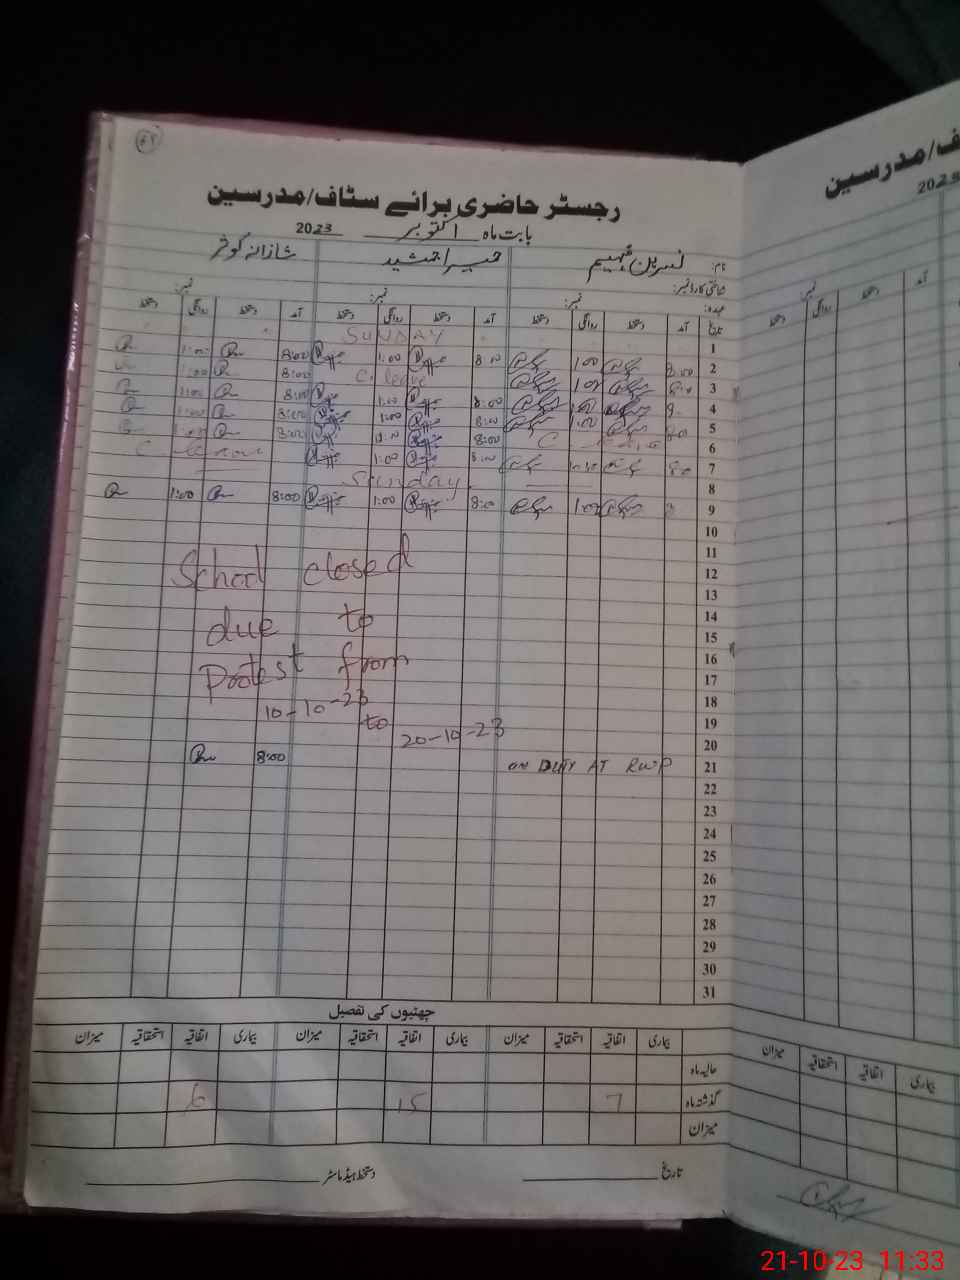 رجسٹر حاضری برائے سٹاف/مدرسین
بابت ماہ اکتوبر 2023
نام: نسرین فہیم حمیرا جمشید شازانہ کوثر
شناختی کارڈ نمبر:
عہدہ: نمبر: نمبر: نمبر:
تاریخ آمد دستخط روانگی دستخط آمد دستخط روانگی دستخط آمد دستخط روانگی دستخط
1 SUNDAY
2 8:00 1:00 8:00 1:00 8:00 1:00
3 8:00 1:00 C. leave 8:00 1:00
4 8: 1:00 8:00 1:00 8:00 1:00
5 80 1:00 8:00 1:00 8:00 1:00
6 C 8:00 1:00 8:00 1:00
7 80 8:00 1:00 C leave
8 Sunday
9 8 1:00 8:00 1:00 8:00 1:00
10
11
12 School closed
13
14 due to
15
16 Protest from
17
18 10-10-23
19 to 20-10-23
20
21 ON DUTY AT RWP 8:00
22
23
24
25
26
27
28
29
30
31
چھٹیوں کی تفصیل
بیماری اتفاقیہ استحقاقیہ میزان بیماری اتفاقیہ استحقاقیہ میزان بیماری اتفاقیہ استحقاقیہ میزان
حالیہ ماہ
گذشتہ ماہ 7 15 6
میزان
تاریخ دستخط ہیڈ ماسٹر
ف/مدرسین
2023
نمبر:
روانگی دستخط
بیماری اتفاقیہ استحقاقیہ میزان
21-10-23 11:33